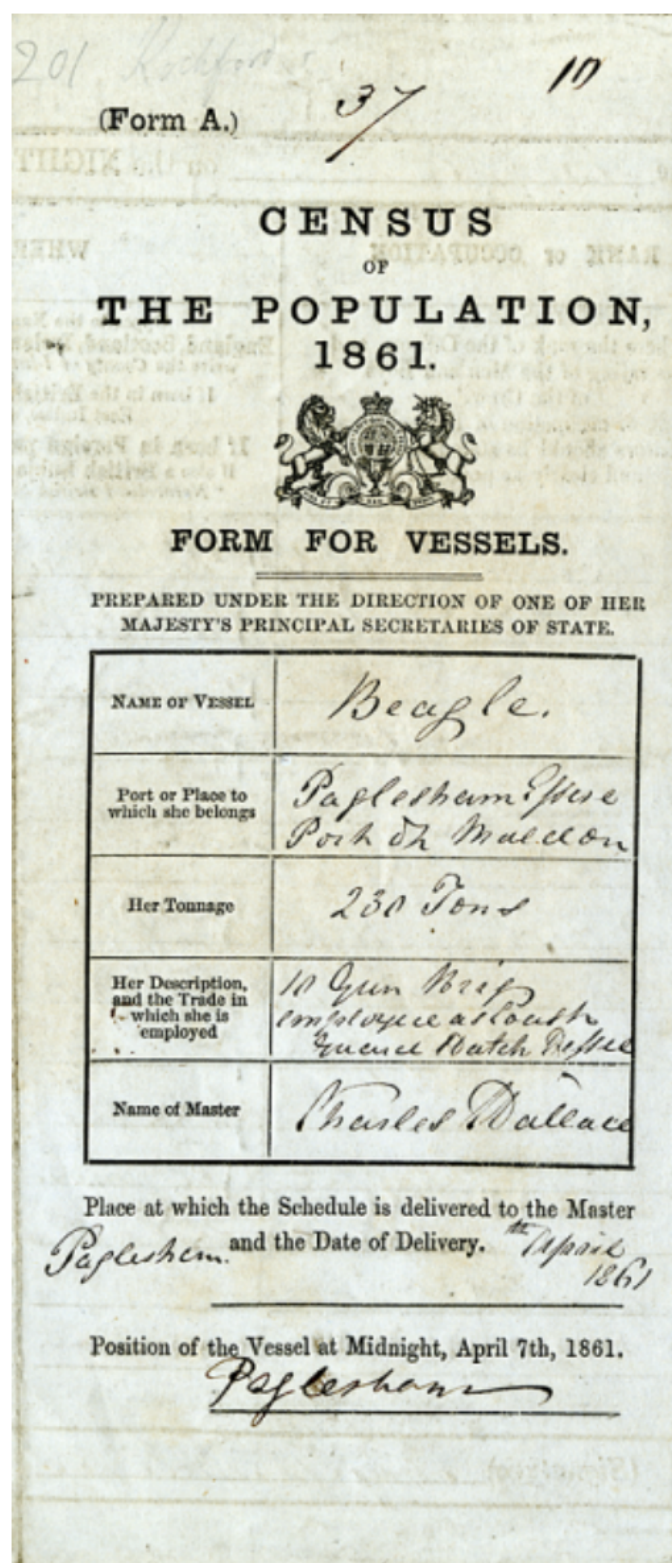 201 Rochford
10
37
(Form A.)
CENSUS
OF
THE POPULATION,
1861.
FORM FOR VESSELS.
PREPARED UNDER THE DIRECTION OF ONE OF HER
MAJESTY'S PRINCIPAL SECRETARIES OF STATE.
NAME OF VESSEL
Beagle.
Port or Place to
which she belongs
Paglesham Essex
Port of Maldon
Her Tonnage
230 Tons
Her Description,
and the Trade in
which she is
employed
10 Gun Brig
employed as Coast
Guard Watch Vessel
Name of Master
Charles Wallace
Place at which the Schedule is delivered to the Master
and the Date of Delivery.
Paglesham.
th April
1861
Position of the Vessel at Midnight, April 7th, 1861.
Paglesham